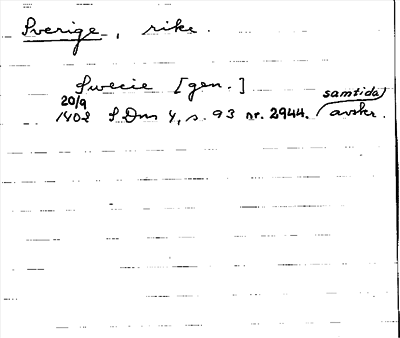 Sverige, rike.
Swecie [gen.]
samtida
20/9
1402 SDns 4, s. 93 nr. 2944. avskr.